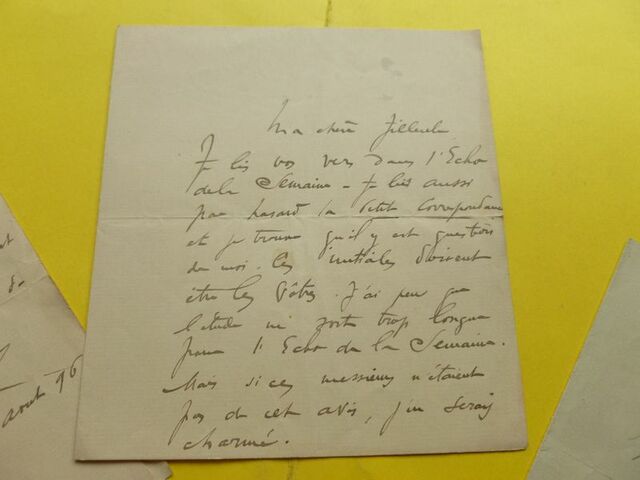 Ma chère filleule
Je lis vos vers dans l'Echo
de la Semaine - Je lis aussi
par hasard la Petite Correspondance
et je trouve qu'il y est question
de moi. Les initiales doivent
être les vôtres. J'ai peur que
l'étude ne soit trop longue
pour l'Echo de la Semaine.
Mais si ces messieurs n'étaient
pas de cet avis, j'en serais
charmé.
août 96